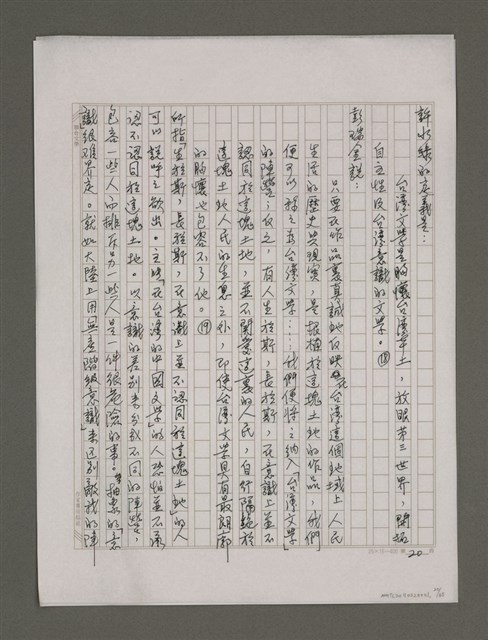 許水綠的定義是：
台灣文學是胸懷台灣本土，放眼第三世界，開拓
自主性及台灣意識的文學。⑱
彭瑞金說：
只要在作品裏真誠地反映在台灣這個地域上人民
生活的歷史與現實，是根植於這塊土地的作品，我們
便可以稱之為台灣文學……我們便將之納入「台灣文學」
的陣營；反之，有人生於斯，長於斯，在意識上並不
認同於這塊土地，並不關愛這裏的人民，自行隔絕於
這塊土地人民的生息之外，即使台灣文學具有最朗廓
的胸懷也包容不了他。⑲
所指「生於斯，長於斯，在意識上並不認同於這塊土地」的人
可以說呼之欲出。主張「在台灣的中國文學」的人恐怕並不承
認不認同這塊土地。以意識的差別來分我不同的陣營，
包容一些人而排斥另一些人是一件很危險的事。抽象的「意
識」很難界定。就如大陸上用無產階級意識」來區別敵我的陣
20